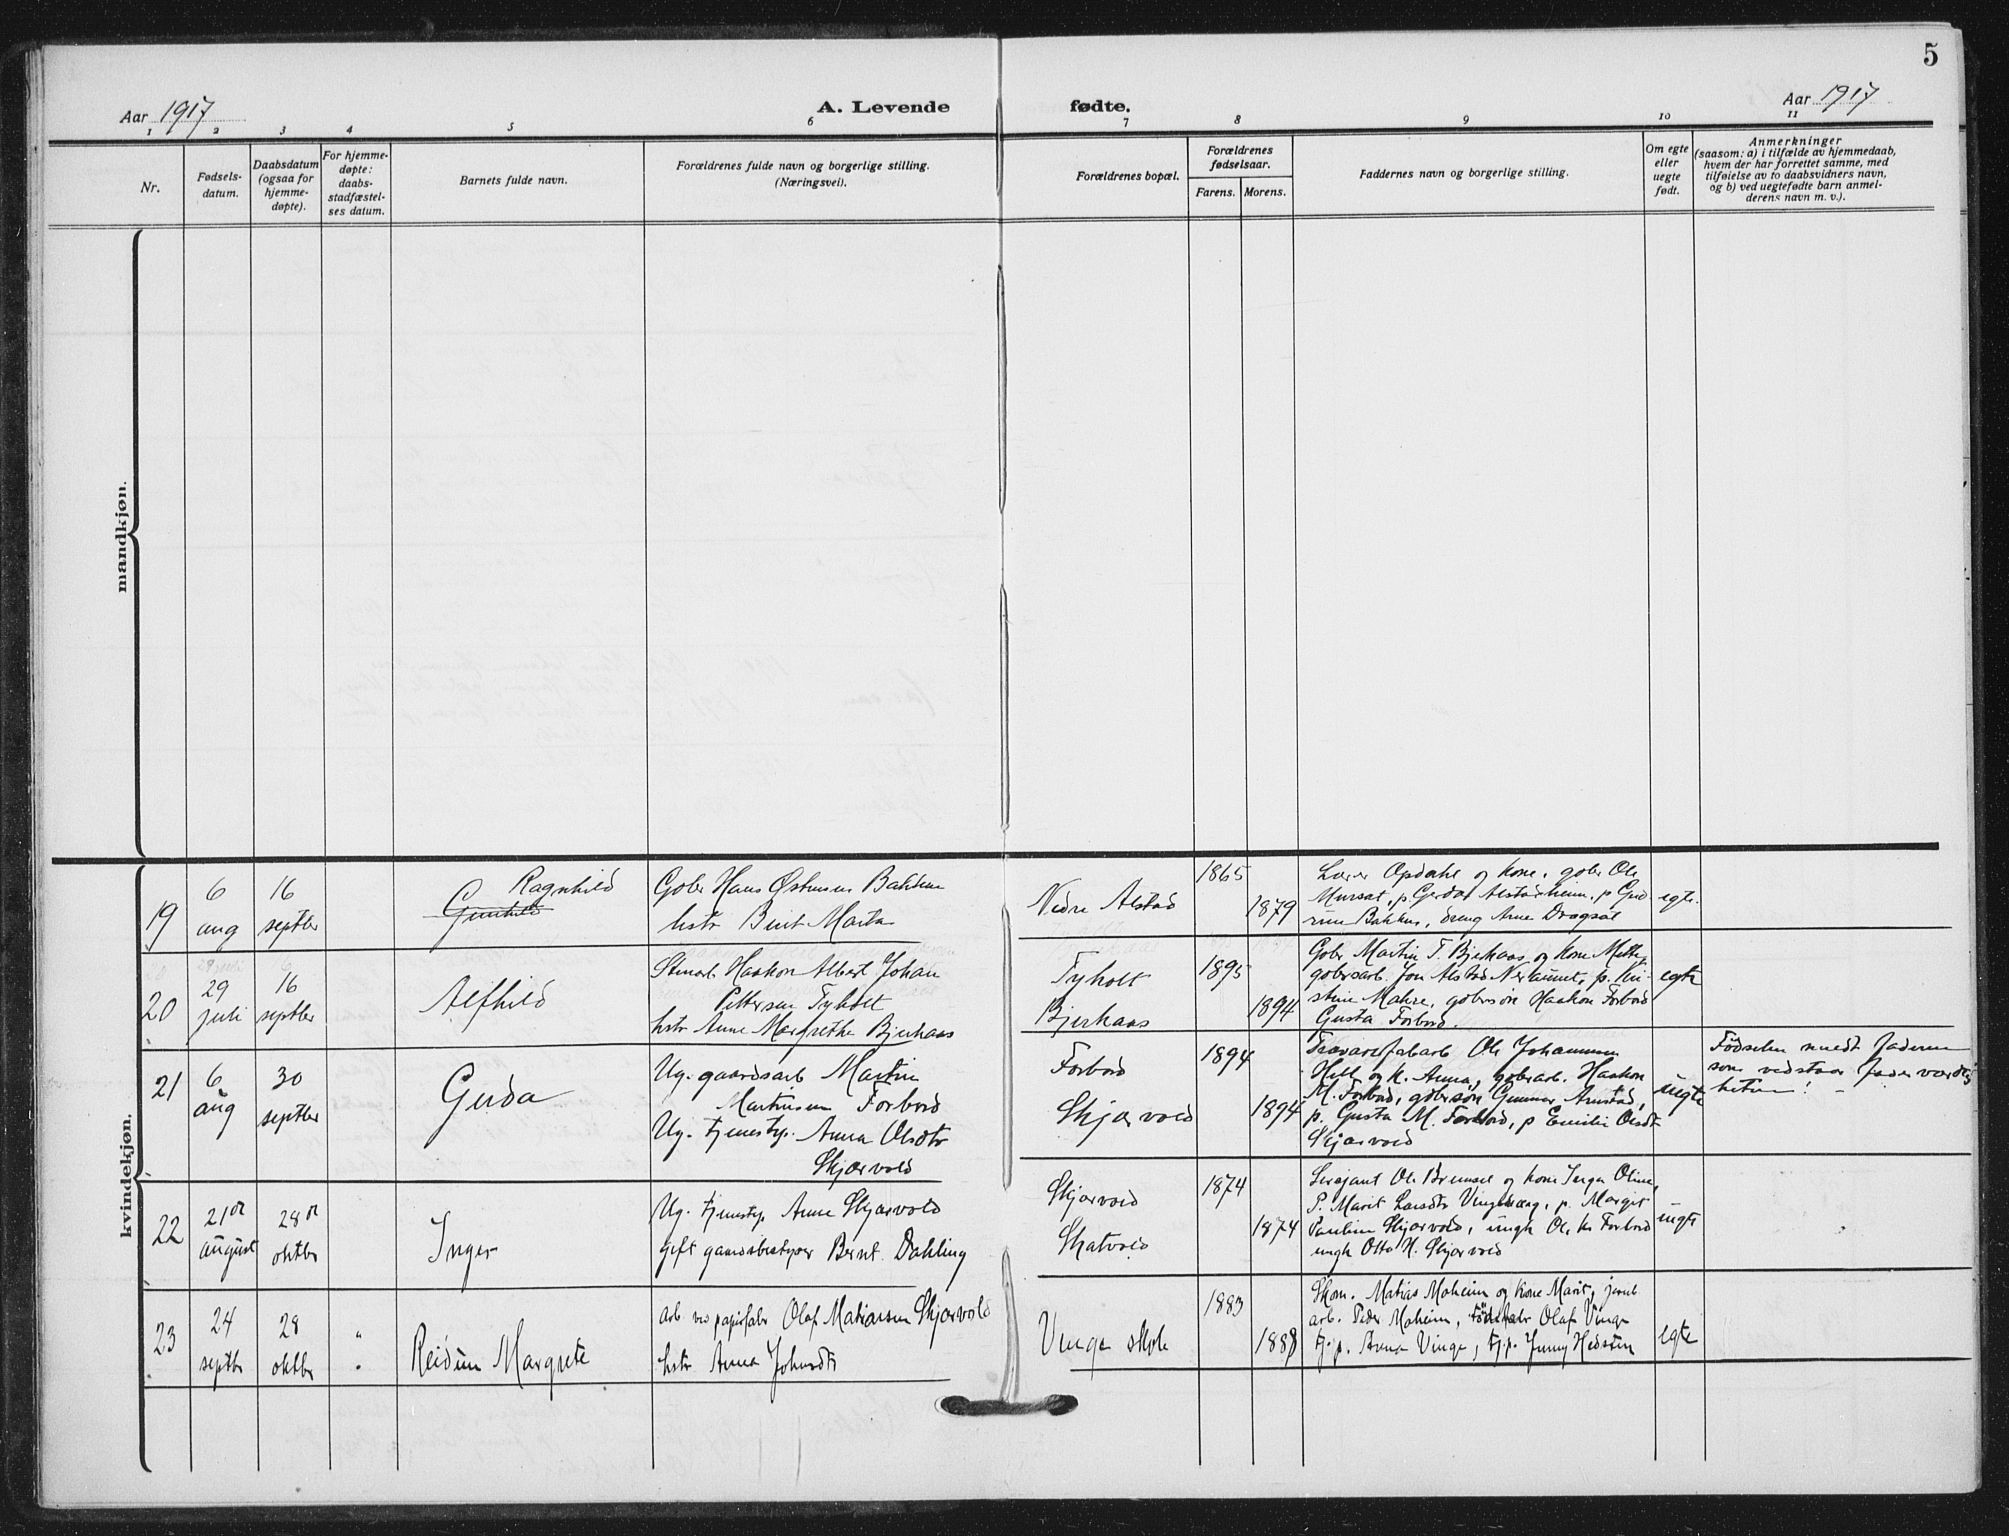 5
Aar 1917
A. Levende fødte.
Aar 1917
1 2 3 4 5 6 7 8 9 10 11
Nr.
Fødsels-
datum.
Daabsdatum
(ogsaa for
hjemme-
døpte).
For hjemme-
døpte:
daabs-
stadfæstel-
ses datum.
Barnets fulde navn.
Forældrenes fulde navn og borgerlige stilling.
(Næringsvei).
Forældrenes bopæl.
Forældrenes
fødselsaar.
Farens. Morens.
Faddernes navn og borgerlige stilling.
Om egte
eller
uegte
født.
Anmerkninger
(saasom: a) i tilfælde av hjemmedaab,
hvem der har forrettet samme, med
tilføielse av to daabsvidners navn,
og b) ved uegtefødte barn anmel-
derens navn m. v.).
mandkjøn.
kvindekjøn.
19
6
aug
16
septbr
Ragnhild
Gunhild
Gbr Hans Østensen Bakken
hstr Berit Marta
Nedre Alstad
1865
1879
Lærer Opdahl og kone, gbr Ole
Mursat, p. Gerda Alstadheim, p Gud
run Bakken, dreng Arne Dragsåt
egte
20
29
juli
16
septbr
Alfhild
Stenarb Haakon Albert Johan
Pettersen Tyholt
hstr Anne Margrethe Bjerkaas
Tyholt
Bjerkaas
1895
1894
Gbr Martin T. Bjerkaas og kone Mette,
gbrarb. Jon Alstad Nertrumet, p. Kri-
stine Mahre, gbrsøn Haakon Forbord
Gusta Forbord.
egte
21
6
aug
30
septbr
Gerda
Ug. gaardsarb Martin
Martinsen Forbord
Ug. tjenestp. Anna Olsdtr
Skjærvold
Forbord
Skjærvold
1894
1894
Trævarefabarb Ole Johannsen
Hell og k. Anna, gbrarb. Haakon
M. Forbord, gbrsøn Gunnar Arnstad,
p. Gusta M. Forbord, p Emilie Olsdt
Skjærvold
uegte
Fødselen meldt faderen
som vedstaar faderværdig
heten!
22
21de
august
28de
oktbr
Inger
Ug. tjenestp. Anne Skjærvold
Gift gaardsbestyrer Bernt Dahling
Skjærvold
Skatvold
1874
1874
Sersjant Ole Bremset og kone Inger Oline,
P. Marit Larsdtr Vingehaug, p. Margit
Pauline Skjærvold, ungk Ole Kr Forbord
ungk Otto H. Skjærvold
uegte
23
24
septbr
28
oktbr
Reidun Margrete
arb ved papirfabr Olaf Matiassen Skjærvold
hstr Anna Johnsdtr
Vinge skole
1883
1888
Skom. Matias Moheim og kone Marit, jernb
arb. Peder Moheim, Olaf Vinge
tj.p. Anna Vinge, tj.p. Jenny Hedsten
egte